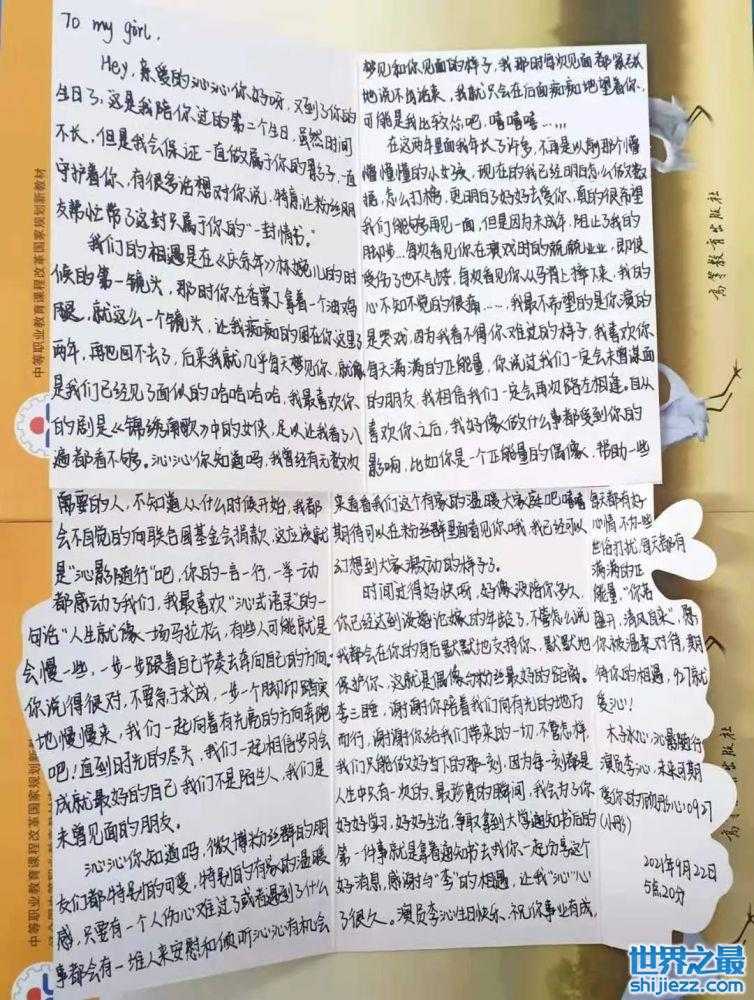 To my girl,
Hey,亲爱的沁沁你好呀,又到了你的
生日了,这是我陪你过的第二个生日,虽然时间
不长,但是我会保证一直做属于你的影子,一直
守护着你、有很多话想对你说,特意让粉丝朋
友帮忙带了这封只属于你的"一封情书"。
我们的相遇是在《庆余年》林婉儿的时
候的第一镜头,那时你在香案下拿着一个油鸡
腿,就这么一个镜头,让我痴痴的困在你这里了
两年,再也回不去了,后来我就几乎每天梦见你,就像
是我们已经见了面似的哈哈哈哈,我最喜欢你
的剧是《锦绣南歌》中的女侠,足以让我看了八
遍都看不够。沁沁你知道吗,我曾经有无数次
梦见和你见面的样子,我那时每次见面都紧张
地说不出话来,我就只会在后面痴痴地望着你、
可能是我比较怂吧,嘻嘻嘻……,
在这两年里面我年长了许多,不再是从前那个懵
懵懂懂的小女孩,现在的我已经明白怎么做数
据,怎么打榜,更明白了好好去爱你、真的很希望
我们能够再见一面,但是因为未成年,阻止了我的
脚步…每次看见你在演戏时的兢兢业业,即使
受伤了也不气馁,每次看见你从马背上摔下来,我的
心不知不觉的很痛……,我最不希望的是你演的
是哭戏,因为我看不得你难过的样子,我喜欢你
每天满满的正能量,你说过我们一定会未曾谋面
的朋友,我相信我们一定会再次陌生相逢。自从
喜欢你之后,我好像做什么事都受到你的
影响,比如你是一个正能量的偶像,帮助一些
需要的人,不知道从什么时候开始,我都
会不自觉的向联合国基金会捐款,这应该就
是"沁影随行"吧,你的一言一行,一举一动
都感动了我们,我最喜欢"沁式语录"的一
句话"人生就像一场马拉松,有些人可能就是
会慢一些,一步一步跟着自己节奏去奔向自己的方向。"
你说得很对,不要急于求成,一步一个脚印踏实
地慢慢来,我们一起向着有光亮的方向奔跑
吧!直到时光的尽头,我们一起相信岁月会
成就最好的自己,我们不是陌生人,我们是
未曾见面的朋友。
沁沁你知道吗,微博粉丝群的朋
友们都特别的可爱,特别的有家的温暖
感,只要有一个人伤心难过了或者遇到了什么
事都会有一堆人来安慰和倾听沁沁有机会
来看看我们这个有家的温暖大家庭吧嘻嘻
期待可以在粉丝群里面看见你哦,我已经可以
幻想到大家激动的样子了。
时间过得好快呀,好像没陪你多久,
你已经达到谈婚论嫁的年龄了,不管怎么说
我都会在你的身后默默地支持你、默默地
保护你、这就是偶像与粉丝最好的距离。
李三睡,谢谢你陪着我们向有光的地方
而行,谢谢你给我们带来的一切,不管怎样,
我们只能做好当下的那一刻,因为每一刻都是
人生中只有一次的、最珍贵的瞬间,我会为了你
好好学习,好好生活,争取拿到大学通知书后的
第一件事就是拿着通知书去找你一起分享这个
好消息,感谢与"李"的相遇,让我"沁"心
了很久。演员李沁生日快乐、祝你事业有成,
每天都有好
心情,不为一些
世俗打扰,每天都有
满满的正
能量,"你若
盛开,清风自来",愿
你被温柔对待,期
待你的相遇,927就
爱沁!
木子水心沁影随行
演员李沁,未来可期
爱你的顾彤心:0927
(小彤)
2021年9月22日
5点20分
中等职业教育课程改革国家规划新教材
中等职业教育课程改革国家规划新教材
高等教育出版社
世界之最
shijiezz.com